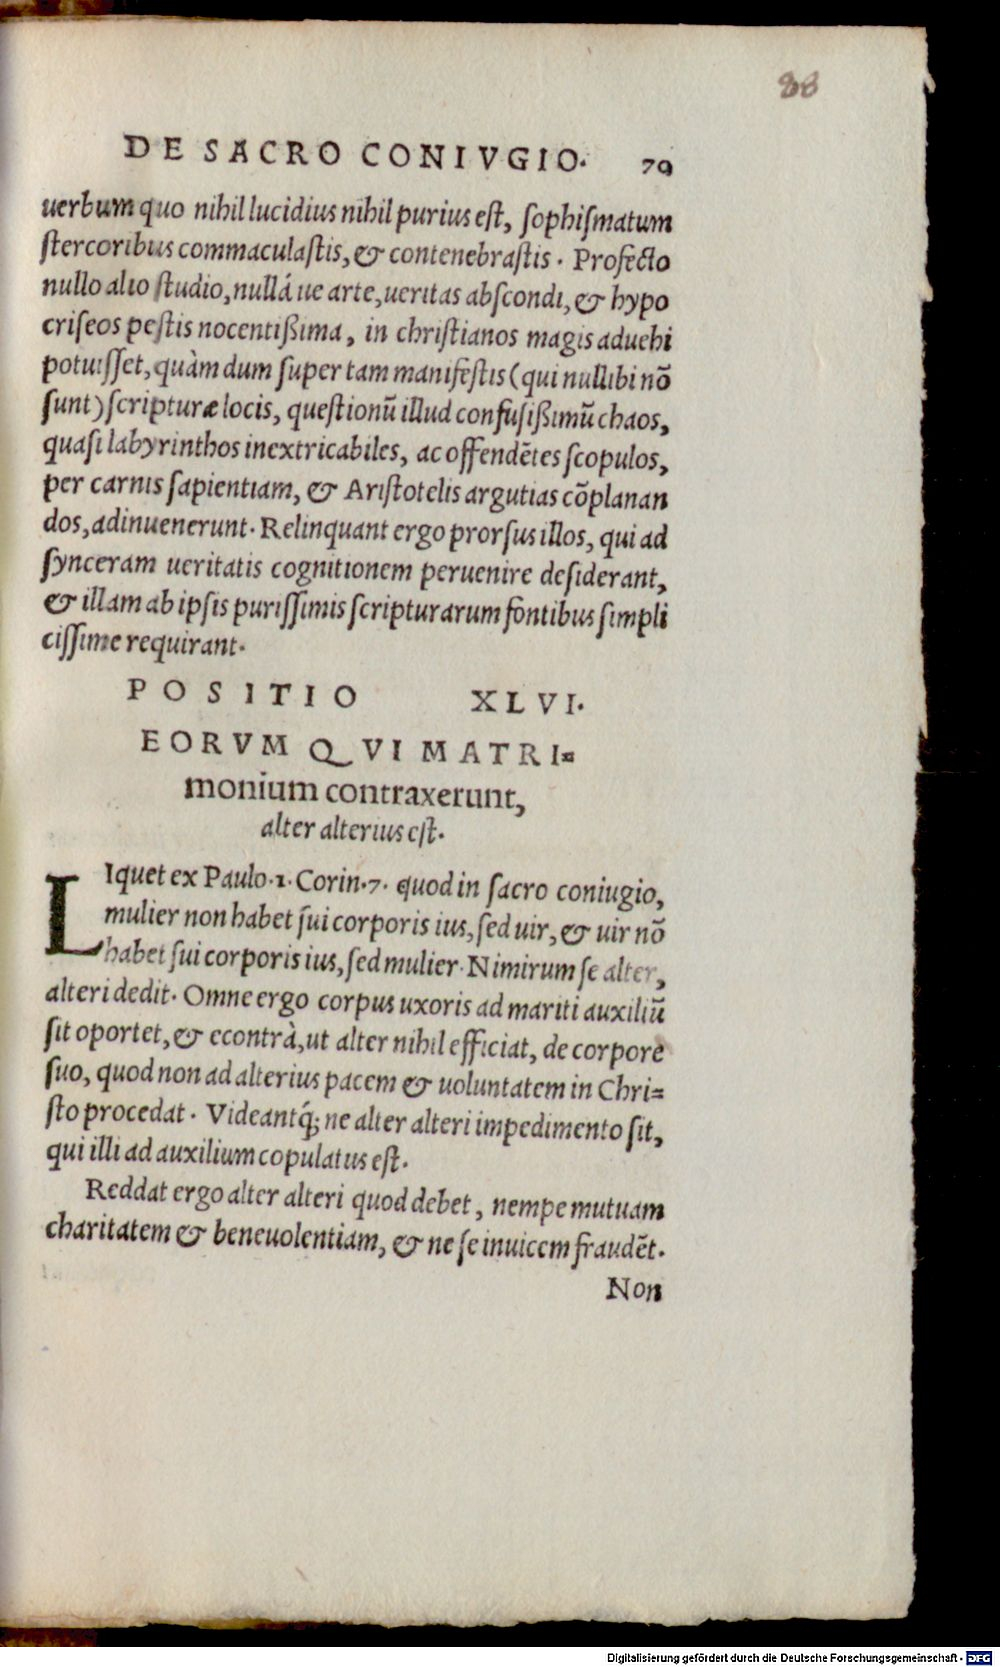 88
DE SACRO CONIVGIO. 79
uerbum quo nihil lucidius nihil purius est, sophiſmatum
ſtercoribus commaculaſtis, & contenebraſtis. Profecto
nullo alio ſtudio, nullá ue arte, ueritas abſcondi, & hypo
criſeos peſtis nocentißima, in chriſtianos magis aduehi
potuiſſet, quàm dum ſuper tam manifeſtis (qui nullibi nō
ſunt) ſcripturæ locis, queſtionũ illud confuſißimũ chaos,
quaſi labyrinthos inextricabiles, ac offendẽtes ſcopulos,
per carnis ſapientiam, & Ariſtotelis argutias cõplanan
dos, adinuenerunt. Relinquant ergo prorſus illos, qui ad
ſynceram ueritatis cognitionem peruenire deſiderant,
& illam ab ipſis puriſſimis ſcripturarum fontibus ſimpli
ciſſime requirant.
POSITIO XLVI.
EORVM QVI MATRI=
monium contraxerunt,
alter alterius eſt.
LIquet ex Paulo.1. Corin.7. quod in ſacro coniugio,
mulier non habet ſui corporis ius, ſed uir, & uir nō
habet ſui corporis ius, ſed mulier. Nimirum ſe alter,
alteri dedit. Omne ergo corpus uxoris ad mariti auxiliũ
ſit oportet, & econtrà, ut alter nihil efficiat, de corpore
ſuo, quod non ad alterius pacem & uoluntatem in Chri=
ſto procedat. Videantq́; ne alter alteri impedimento ſit,
qui illi ad auxilium copulatus eſt.
Reddat ergo alter alteri quod debet, nempe mutuam
charitatem & beneuolentiam, & ne ſe inuicem fraudẽt.
Non
Digitalisierung gefördert durch die Deutsche Forschungsgemeinschaft - DFG